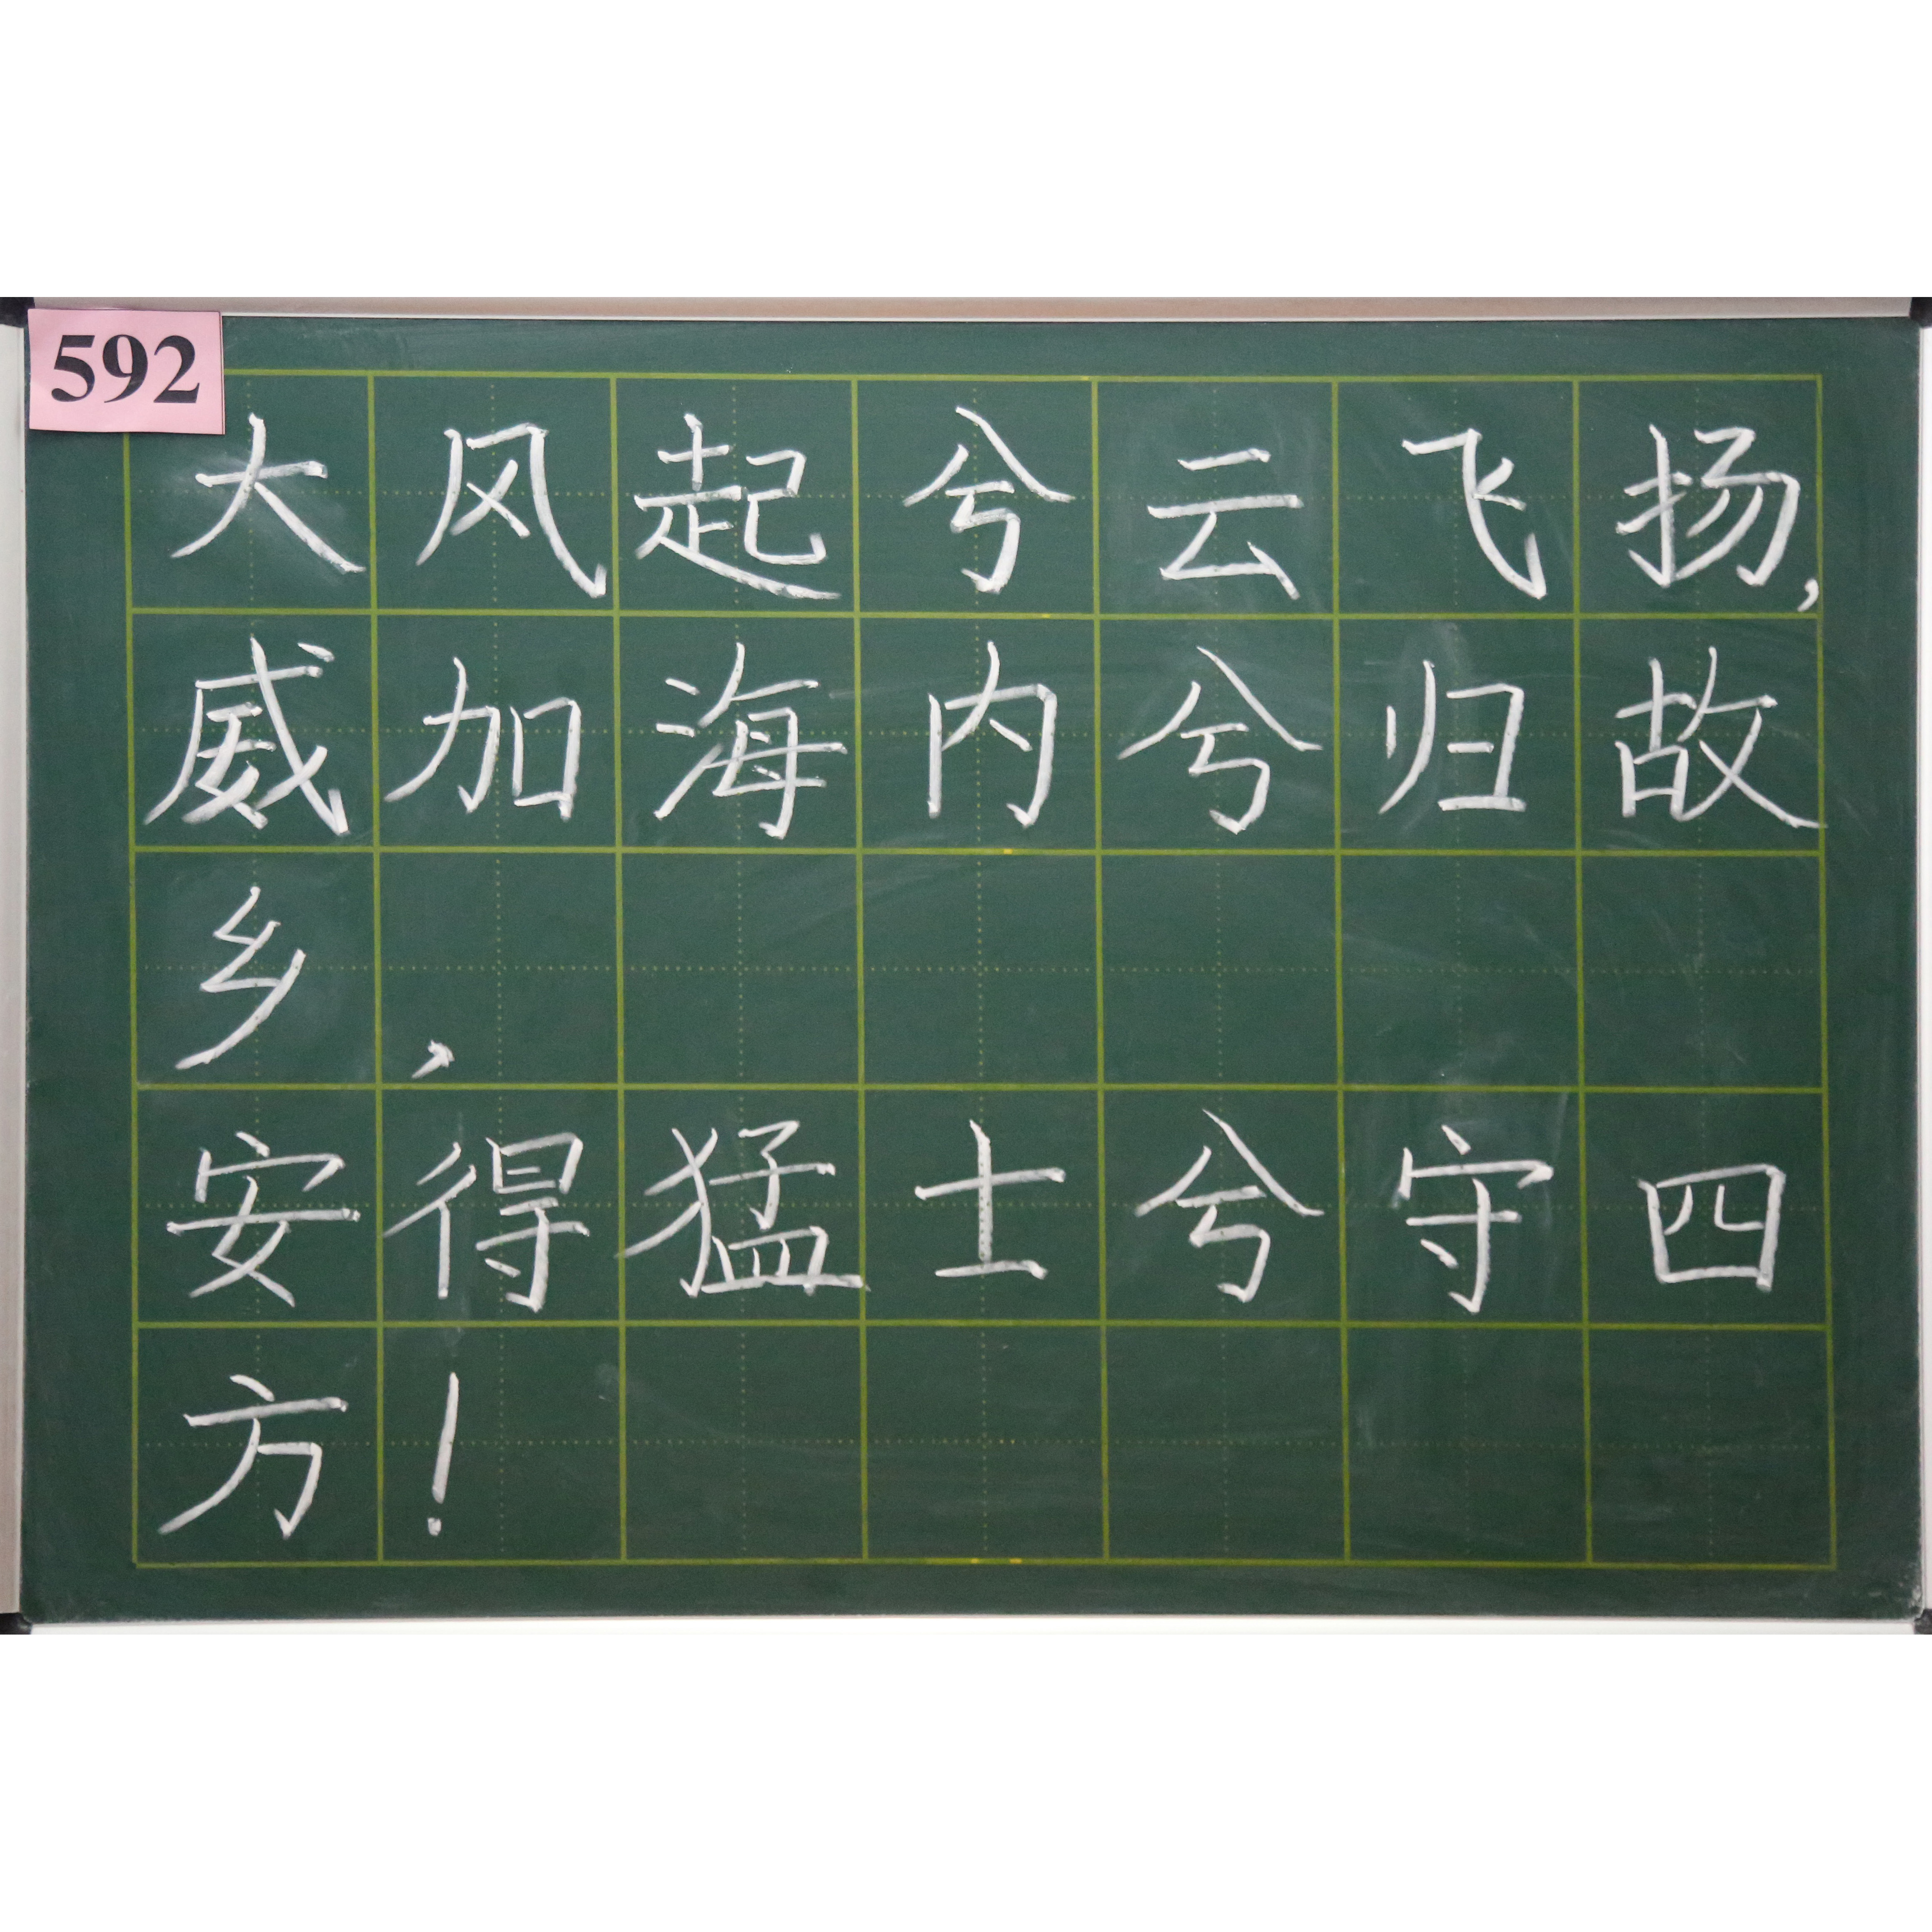 592
大风起兮云飞扬,
威加海内兮归故
乡,
安得猛士兮守四
方!